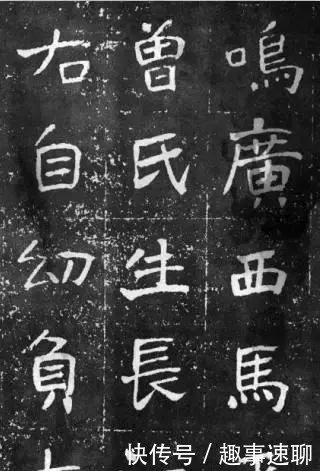 鳴廣西馬
曾氏生長
右自幼負
快传号/趣事速聊